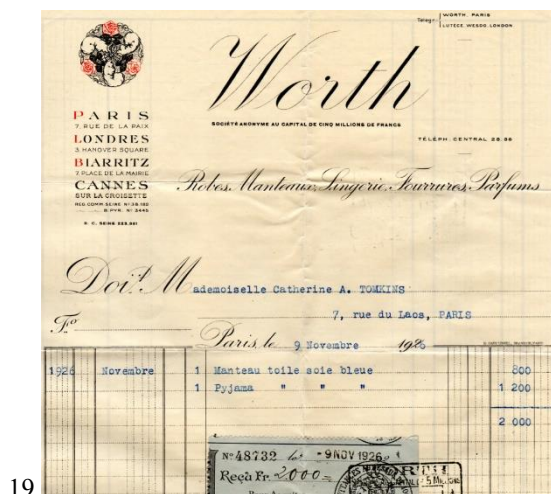 Télégr.: WORTH. PARIS
LUTÈCE. WESDO. LONDON
Worth
SOCIÉTÉ ANONYME AU CAPITAL DE CINQ MILLIONS DE FRANCS
TÉLÉPH. CENTRAL
PARIS
7. RUE DE LA PAIX
LONDRES
3. HANOVER SQUARE
BIARRITZ
7. PLACE DE LA MAIRIE
CANNES
SUR LA CROISETTE
Robes, Manteaux, Lingerie, Fourrures, Parfums
Doit Mademoiselle Catherine A. TOMKINS
7, rue du Laos, PARIS
Fo
Paris, le 9 Novembre 1926
1926 Novembre 1 Manteau toile soie bleue 800
1 Pyjama " " " 1 200
2 000
No 48732 le -9 NOV 1926
Reçu Fr. 2000=
19